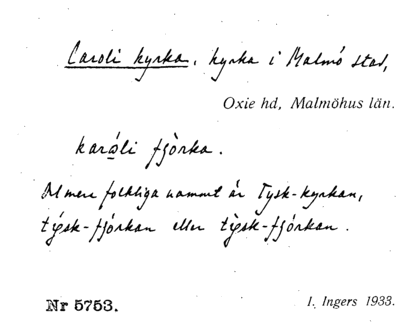 Caroli kyrka, kyrka i Malmö stad,
Oxie hd, Malmöhus län.
karǻli fjörka.
Det mera folkliga namnet är Tysk-kyrkan,
týsk-fjórkan eller tỳsk-fjórkan.
Nr 5753.
I. Ingers 1933.